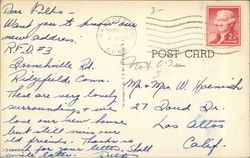 Dear Folks -
Want you to know our
new address:
R.F.D. #3
Branchville Rd.
Ridgefield Conn.
These are very lovely
surroundings & we
love our new house
but still miss our
old friends. Thanks so
much for your letter. Shall
write later.
NOV
CONN.
2¢
POST CARD
Mr & Mrs W.
27 Doud Dr.
Los Altos
Calif.